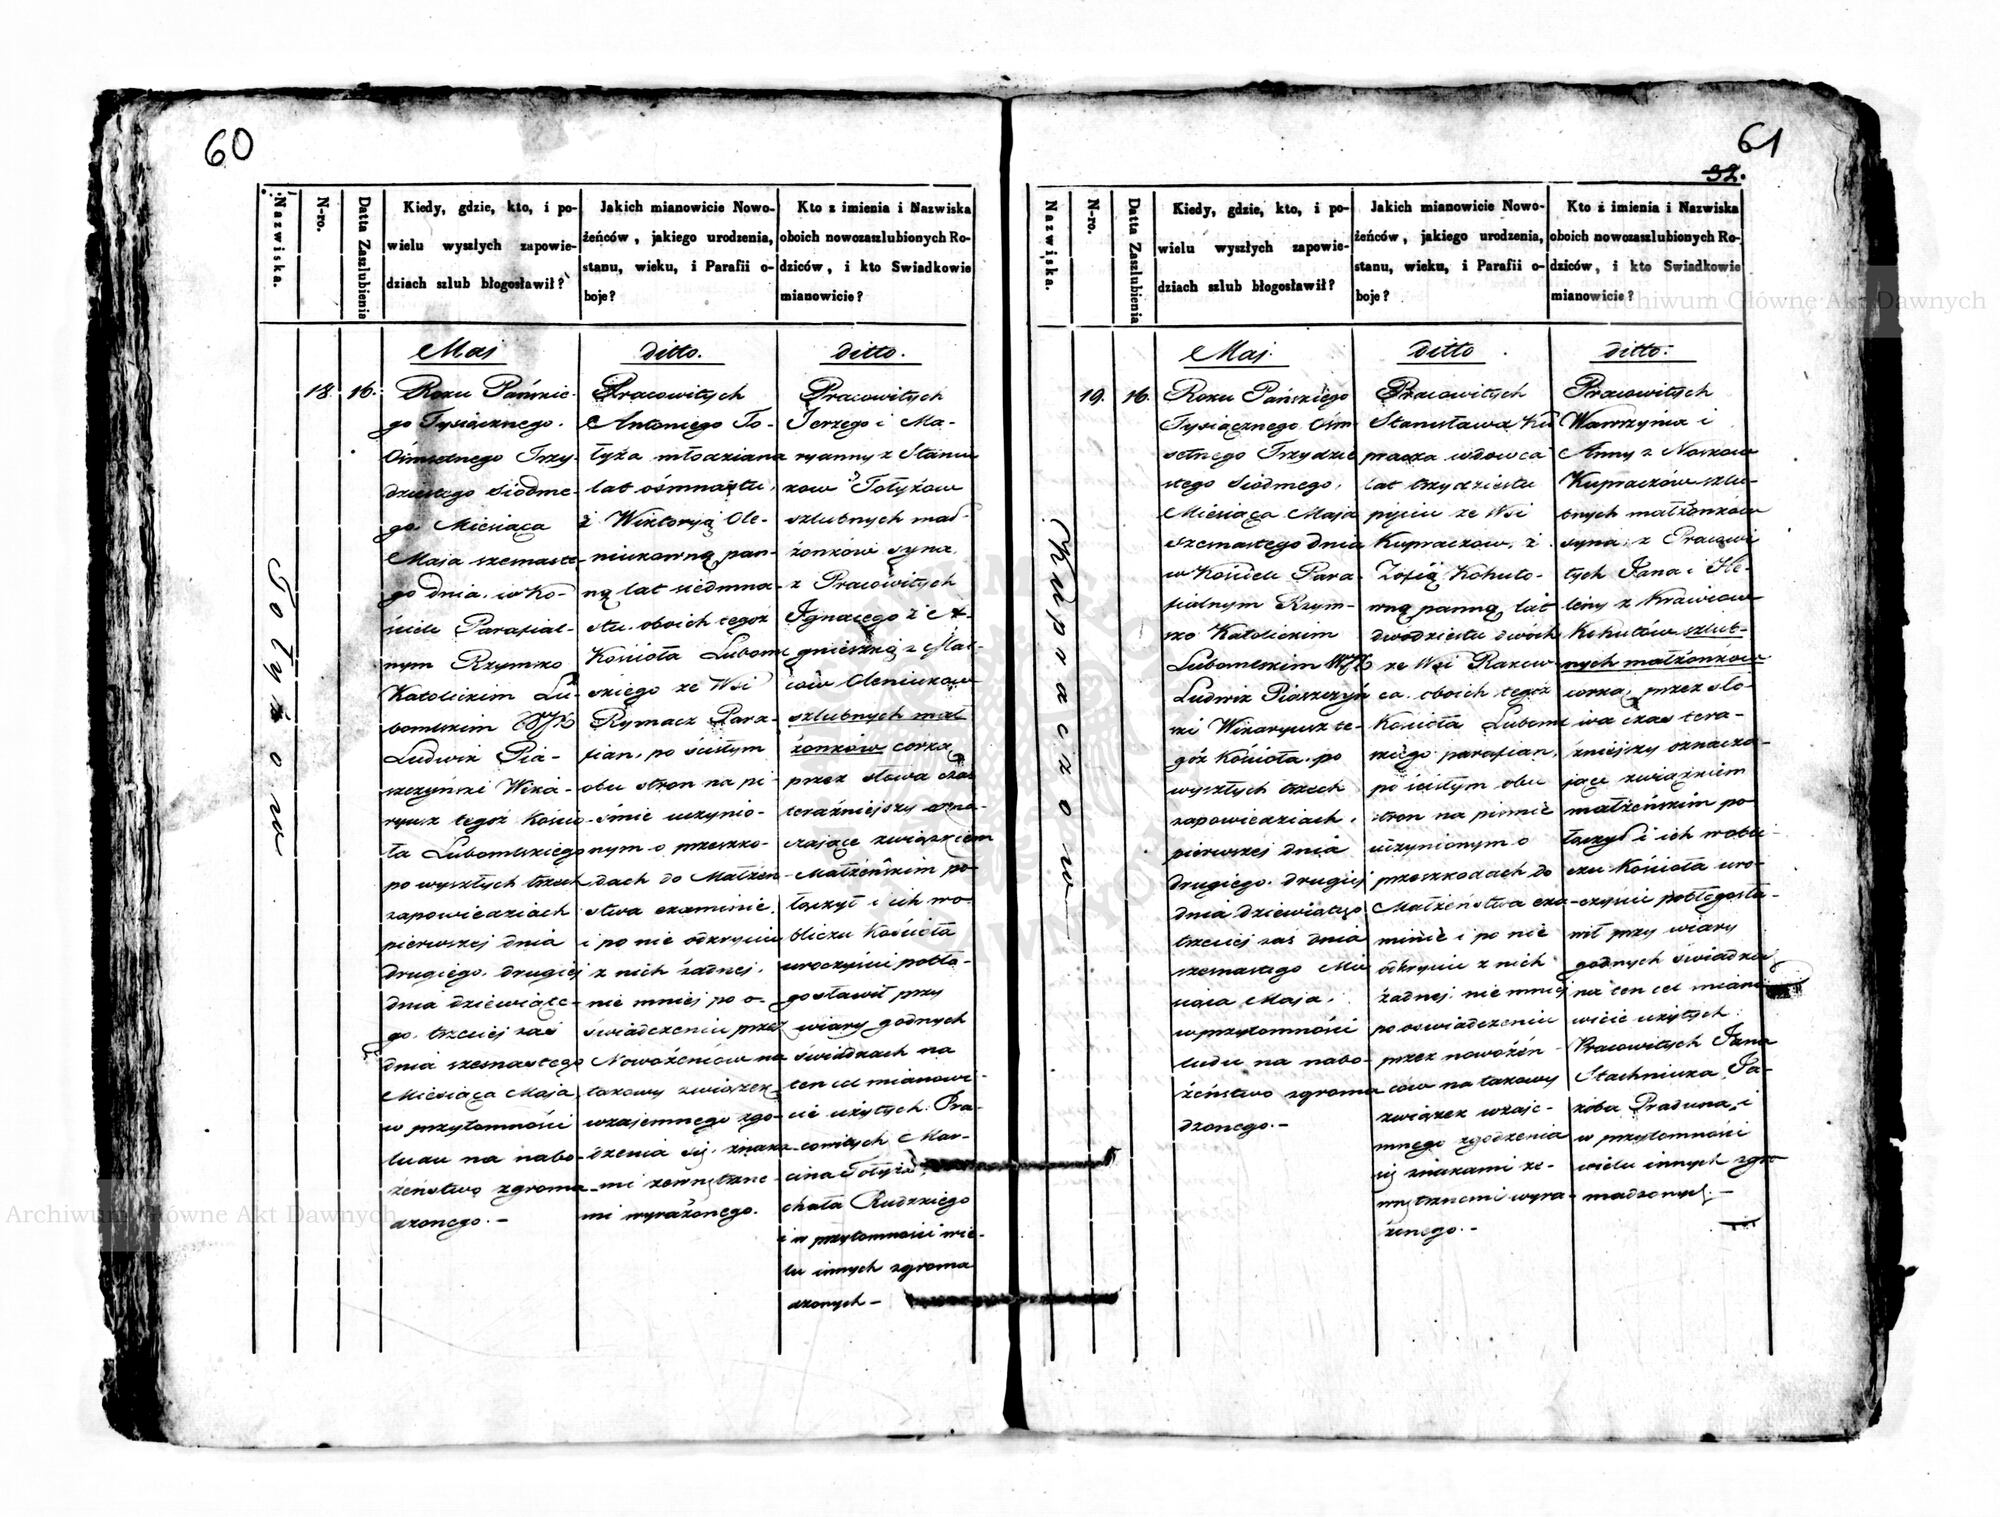 60
Nazwiska.
N-ro.
Datta Zaszlubienia
Kiedy, gdzie, kto, i po-
wielu wyszłych zapowie-
dziach szlub błogosławił?
Jakich mianowicie Nowo-
żeńców, jakiego urodzenia,
stanu, wieku, i Parafii o-
boje?
Kto z imienia i Nazwiska
oboich nowozaszlubionych Ro-
dziców, i kto Swiadkowie
mianowicie?
Totyżow
18.
16.
Maj
Roku Pańskie-
go Tysiącznego
Ośmsetnego Trzy-
dziestego siódme-
go Miesiąca
Maja szesnaste-
go dnia, w Ko-
ściele Parafial-
nym Rzymsko
Katolickim Lu-
bomlskim WJX
Ludwik Pia-
szczyński Wika-
ryusz tegoż Kościo
ła Lubomlskiego
po wyszłych trzech
zapowiedziach
pierwszej dnia
drugiego, drugiej
dnia dziewiąte-
go, trzeciej zaś
dnia szesnastego
Miesiąca Maja
w przytomności
ludu na nabo-
żeństwo zgroma-
dzonego.-
ditto.
Pracowitych
Antoniego To-
tyża młodziana
lat ośmnastu,
z Wiktoryą Ole-
niukowną pan-
ną lat siedmna-
stu, oboich tegoż
Kościoła Luboml
skiego ze Wsi
Rymacz Para-
fian, po ścisłym
obu stron na pi-
śmie uczynio-
nym o przeszko-
dach do Małżeń-
stwa examinie,
i po nie odkryciu
z nich żadnej,
nie mniej po o-
świadczeniu przez
Nowożeńców na
takowy związek
wzajemnego zgo-
dzenia się, znaka-
mi zewnętrzne-
mi wyrażonego.
ditto.
Pracowitych
Jerzego i Ma-
ryanny z Staniu
kow Totyżow
szlubnych mał-
żonków syna,
z Pracowitych
Ignacego i A-
gnieszką z
Oleniukow
szlubnych mał
żonków corką,
przez słowa czas
teraźniejszy ozna-
czające związkiem
Małżeńskim po
łączył i ich w o-
bliczu Kościoła
uroczyście pobło-
gosławił przy
wiary godnych
świadkach na
ten cel mianowi-
cie użytych: Pra-
cowitych Mar-
cina Totyża,
chała Rudzkiego
i w przytomności wie-
lu innych zgroma
dzonych -
61
32.
Nazwiska.
N-ro.
Datta Zaszlubienia
Kiedy, gdzie, kto, i po-
wielu wyszłych zapowie-
dziach szlub błogosławił?
Jakich mianowicie Nowo-
żeńców, jakiego urodzenia,
stanu, wieku, i Parafii o-
boje?
Kto z imienia i Nazwiska
oboich nowozaszlubionych Ro-
dziców, i kto Swiadkowie
mianowicie?
Kupraczow
19.
16.
Maj.
Roku Pańskiego
Tysiącznego Ośm
setnego Trzydzie
stego siódmego,
Miesiąca Maja
szesnastego dnia
w Kościele Para
fialnym Rzym-
sko Katolickim
Lubomlskim WJX
Ludwik Piaszczyń
ski Wikaryusz te-
goż Kościoła, po
wyszłych trzech
zapowiedziach,
pierwszej dnia
drugiego, drugiej
dnia dziewiątego
trzeciej zaś dnia
szesnastego Mie
siąca Maja,
w przytomności
ludu na nabo-
żeństwo zgroma
dzonego.-
ditto
Pracowitych
Stanisława Ku
pracza wdowca
lat trzydziestu
pięciu ze Wsi
Kupraczow, z
Zofią Kohuto-
wną panną lat
dwódziestu dwóch
ze Wsi Rakow-
ca, oboich tegoż
Kościoła Luboml
skiego parafian,
po ścisłym obu
stron na piśmie
uczynionym o
przeszkodach do
Małżeństwa exa-
minie i po nie
odkryciu z nich
żadnej, nie mniej
po oswiadczeniu
przez nowożeń-
ców na takowy
związek wzaje-
mnego zgodzenia
się znakami ze-
wnętrznemi wyra-
żonego.-
ditto.
Pracowitych
Wawrzyńca i
Anny z
Kupraczów szlu-
bnych małżonków
syna, z Pracowi
tych Jana i He-
leny z Krawców
Kohutów szlub-
nych małżonków
corką, przez sło-
wa czas tera-
źniejszy oznacza-
jące związkiem
małżeńskim po
łączył i ich w obli-
czu Kościoła uro-
czyście pobłogosła-
wił przy wiary
godnych świadka
na ten cel miano
wicie użytych:
Pracowitych Jana
Stachniuka, Ja-
kóba Praduna, i
w przytomności
wielu innych zgro
madzonych.-
Archiwum Główne Akt Dawnych
Archiwum Główne Akt Dawnych